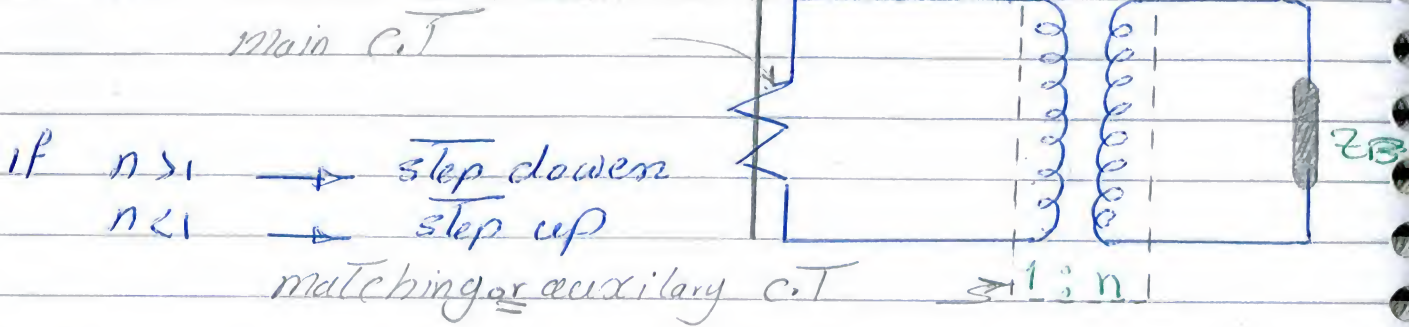 Main C.T
if n>1 → step dowen
n<1 → step up
ZB
matching or auxilary C.T → 1 : n